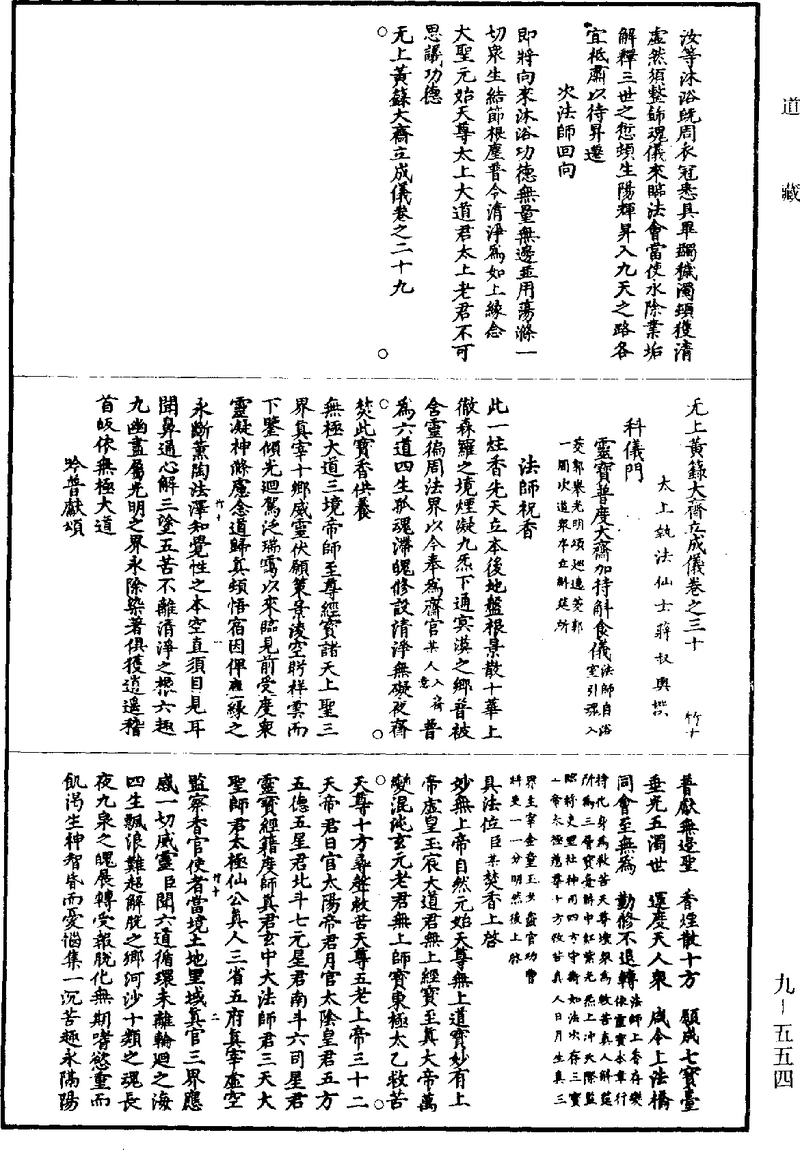 道藏
汝等沐浴既周衣冠悉具畢蠲穢濁頓獲清
虛然須整飾魂儀來臨法會當使水除業垢
解釋三世之愆頓生陽輝昇入九天之路各
宜祗肅以待昇遷
次法師回向
即將向來沐浴功德無量無邊並用蕩滌一
切衆生結節根塵普令清淨爲如上緣念
大聖元始天尊太上大道君太上老君不可
思議功德
无上黃籙大齋立成儀卷之二十九
无上黃籙大齋立成儀卷之三十 竹十
太上執法仙士蔣叔輿撰
科儀門
靈寶普度大齋加持斛食儀 法師自浴室引魂入
茭郭舉光明頌迴遶茭郭
一周次道衆序立斛筵所
法師祝香
此一炷香先天立本後地盤根景散十華上
徹森羅之境煙凝九炁下通冥漠之鄉普被
含靈徧周法界以今奉爲齋官某人入齋意普
爲六道四生孤魂滯魄修設清淨無礙夜齋
焚此寶香供養
無極大道三境帝師至尊經寶諸天上聖三
界真宰十鄉威靈伏願策景淩空眄祥雲而
下鑒傾光迴駕泛瑞靄以來臨見前受度衆
靈凝神滌慮念道歸真頓悟宿因俾離緣之
永斷薰陶法澤知覺性之本空直須目見耳
聞鼻通心解三塗五苦不離清淨之根六趣
九幽盡屬光明之界永除染著俱獲逍遥稽
首皈依無極大道
吟普獻頌
普獻無邊聖 香煙散十方 願成七寶臺
垂光五濁世 運度天人衆 咸令上法橋
同會至無爲 勤修不退轉 法師上香存變依靈寶本章行
持化身爲救苦天尊壇衆爲救苦真人斛筵
所爲三層寶臺斛中紅紫光炁上冲天際監
臨將吏里社神用四方守衛如法次存三寶
上帝太極慈尊十方救苦真人日月星真三
界主宰金童玉女齋官功曹
將吏一一分明然後上啓
具法位臣某焚香上啓
妙無上帝自然元始天尊無上道寶妙有上
帝虛皇玉宸大道君無上經寶至真大帝萬
變混沌玄元老君無上師寶東極太乙救苦
天尊十方尋聲救苦天尊五老上帝三十二
天帝君日宫太陽帝君月宫太陰皇君五方
五德五星君北斗七元星君南斗六司星君
靈寶經籍度師真君玄中大法師君三天大
聖師君太極仙公真人三省五府真宰虛空
監察香官使者當境土地里域真官三界應
感一切威靈臣聞六道循環未離輪迴之海
四生飄浪難超解脫之鄉河沙十類之魂長
夜九泉之魄展轉受報脫化無期嗜慾重而
飢渴生神智昏而憂惱集一沉苦趣永隔陽
九-五五四